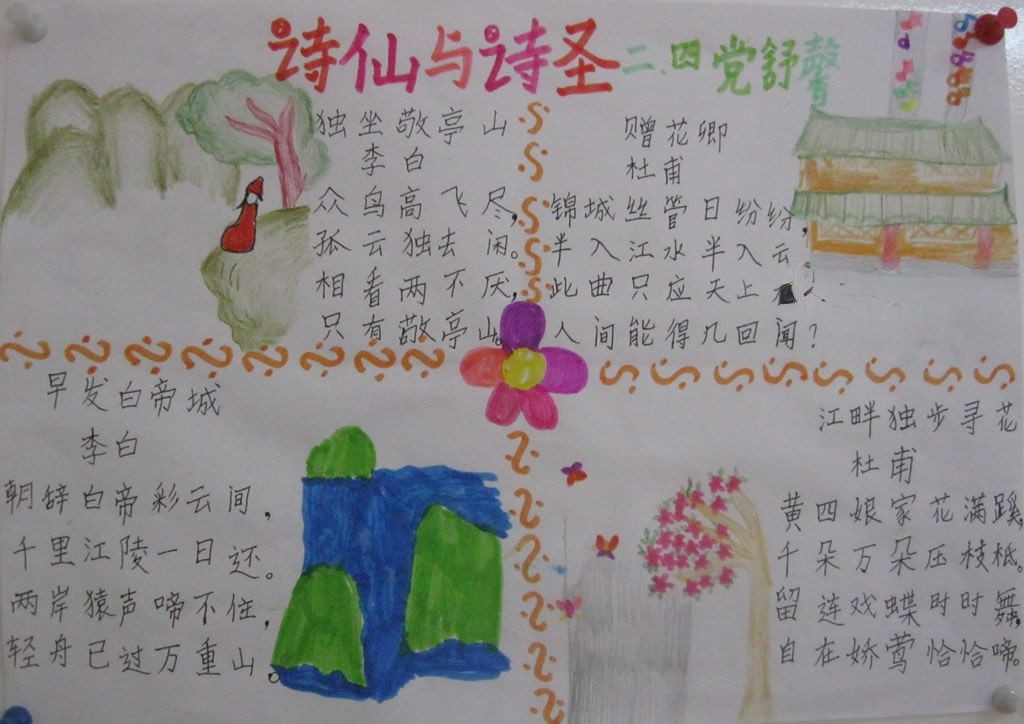 诗仙与诗圣 二.四 党舒馨
独坐敬亭山
李白
众鸟高飞尽,
孤云独去闲。
相看两不厌,
只有敬亭山。
赠花卿
杜甫
锦城丝管日纷纷,
半入江水半入云
此曲只应天上
人间能得几回闻?
早发白帝城
李白
朝辞白帝彩云间,
千里江陵一日还。
两岸猿声啼不住,
轻舟已过万重山。
江畔独步寻花
杜甫
黄四娘家花满蹊,
千朵万朵压枝柢。
留连戏蝶时时舞,
自在娇莺恰恰啼。